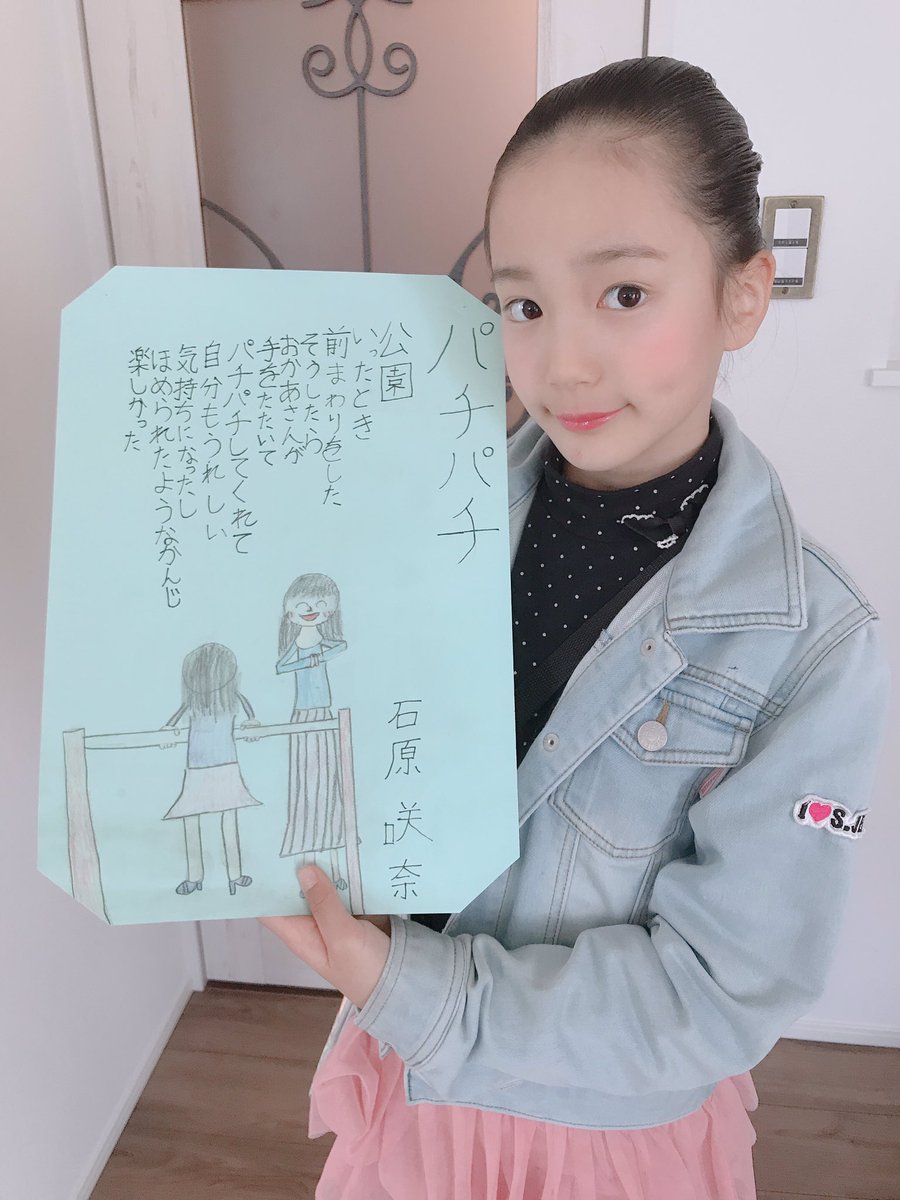 パチパチ
公園
いったとき
前まわりをした
そうしたら
おかあさんが
手をたたいて
パチパチしてくれて
自分もうれしい
気持ちになったし
ほめられたようなかんじ
楽しかった
石原咲奈
I♥S.JE